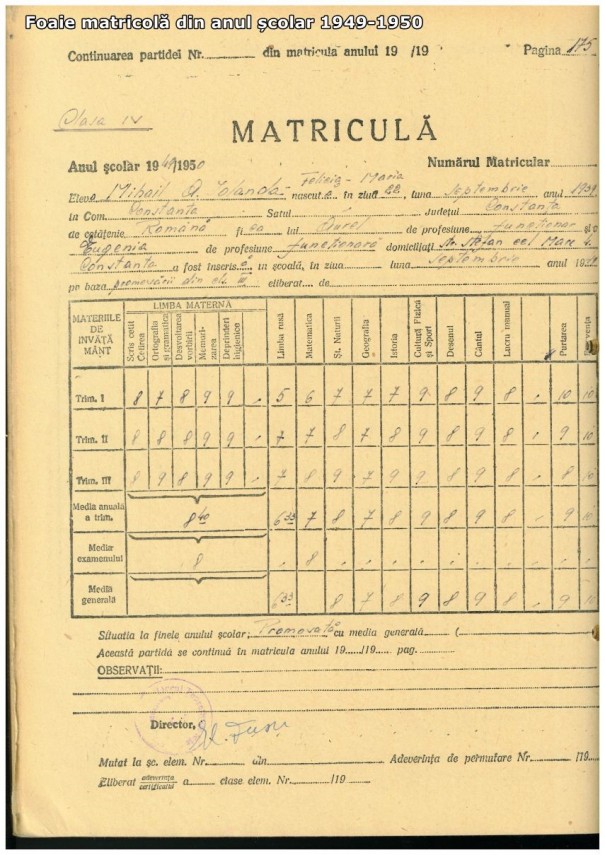 Foaie matricolă din anul școlar 1949-1950
Continuarea partidei Nr. din matricula anului 19 /19 Pagina 175
Clasa IV
MATRICULĂ
Anul şcolar 1949/1950 Numărul Matricular
Felicia - Maria
Eleva Mihail A. Iolanda născută în ziua 22, luna Septembrie anul 1939
în Com. Constanta Satul Judeţul Constanta
de cetăţenie Română fiica lui Aurel de profesiune funcţionar şi a
Eugenia de profesiune funcţionară domiciliaţi Str. Ştefan cel Mare
Constanta a fost înscrisă în şcoală, în ziua luna Septembrie anul 1949
pe baza promovării din cls. III eliberat de
MATERIILE DE INVĂŢĂMÂNT LIMBA MATERNĂ Scris cetit Cetirea Ortografia şi gramatica Desvoltarea vorbirii Memorizarea Deprinderi higienice Limba rusă Matematica Şt. Naturii Geografia Istoria Cultură Fizică şi Sport Desenul Cântul Lucru manual Purtarea Frecvenţa
Trim. I 8 7 8 9 9 . 5 6 7 7 7 9 8 9 8 . 10 10
Trim. II 8 8 8 9 9 . 7 7 8 7 8 9 8 9 8 . 9 10
Trim. III 8 9 8 9 9 . 7 8 9 7 9 9 8 9 8 . 8 10
Media anuală a trim. 8 40 6 33 7 8 7 8 9 8 9 8 . 9 10
Media examenului 8 . 8 . . . . . . . . . .
Media generală 6 33 8 7 8 9 8 9 8 . 9 10
Situatia la finele anului şcolar; Promovată cu media generală (
Această partidă se continuă în matricula anului 19 /19 pag.
OBSERVAŢII:
Director,
Mutat la şc. elem. Nr. din Adeverinţa de permutare Nr. /19
Eliberat adeverinţa certificatul a clase elem. Nr. /19